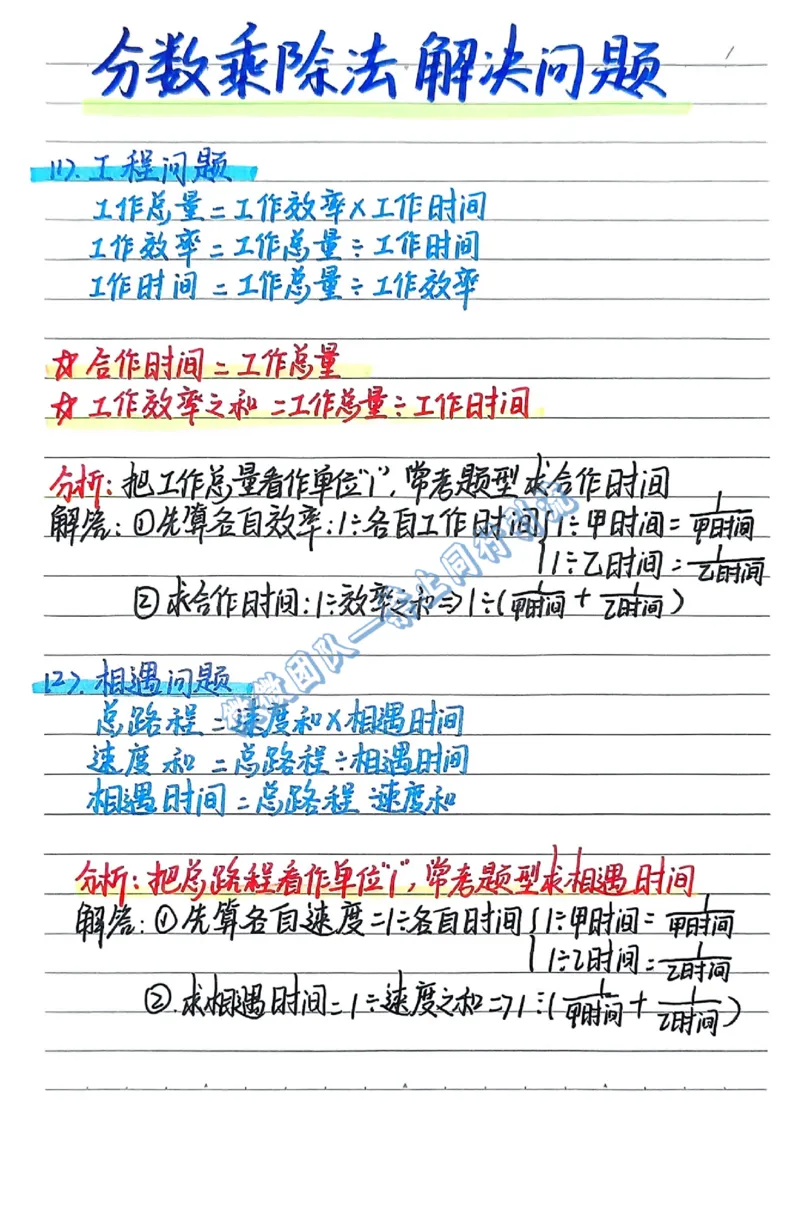 分数乘除法解决问题
(1).工程问题
工作总量=工作效率×工作时间
工作效率=工作总量÷工作时间
工作时间=工作总量÷工作效率
☆合作时间=工作总量
☆工作效率之和=工作总量÷工作时间
分析:把工作总量看作单位"1",常考题型求合作时间
解答:①先算各自效率:1÷各自工作时间{1÷甲时间=1/甲时间
1÷乙时间=1/乙时间
②求合作时间:1÷效率之和⇒1÷(1/甲时间+1/乙时间)
(2).相遇问题
总路程=速度和×相遇时间
速度和=总路程÷相遇时间
相遇时间=总路程÷速度和
分析:把总路程看作单位"1",常考题型求相遇时间
解答:①先算各自速度=1÷各自时间{1÷甲时间=1/甲时间
1÷乙时间=1/乙时间
②.求相遇时间=1÷速度之和=>1÷(1/甲时间+1/乙时间)
微团队一
同行